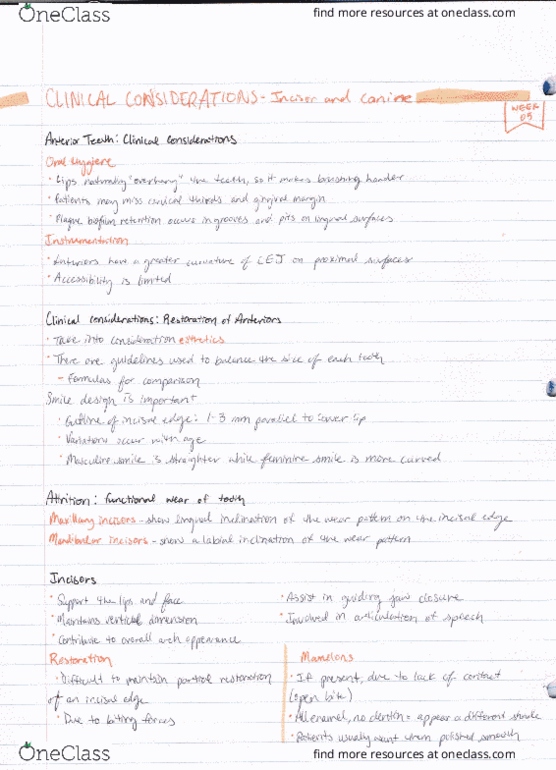 OneClass
find more resources at oneclass.com
CLINICAL CONSIDERATIONS - Incisor and canine
WEEK 05
Anterior Teeth: Clinical considerations
Oral Hygiene
· Lips naturally "overhang" the teeth, so it makes brushing harder
· Patients may miss cervical thirds and gingival margin
· Plaque biofilm retention occurs in grooves and pits on lingual surfaces
Instrumentation
· Anteriors have a greater curvature of CEJ on proximal surfaces
· Accessibility is limited
Clinical considerations: Restoration of Anteriors
· Take into consideration esthetics
· There are guidelines used to balance the size of each tooth
- Formulas for comparison
Smile design is important
· Outline of incisal edge: 1-3 mm parallel to lower lip
· Variations occur with age
· Masculine smile is straighter while feminine smile is more curved
Attrition: functional wear of tooth
Maxillary incisors - show lingual inclination of the wear pattern on the incisal edge
Mandibular incisors - show a labial inclination of the wear pattern
Incisors
· Support the lips and face
· Maintains vertical dimension
· Contribute to overall arch appearance
· Assist in guiding jaw closure
· Involved in articulation of speech
Restoration
· Difficult to maintain partial restoration
of an incisal edge
· Due to biting forces
Mamelons
· If present, due to lack of contact
(open bite)
· All enamel, no dentin = appear a different shade
· Patients usually want them polished smooth
OneClass
find more resources at oneclass.com